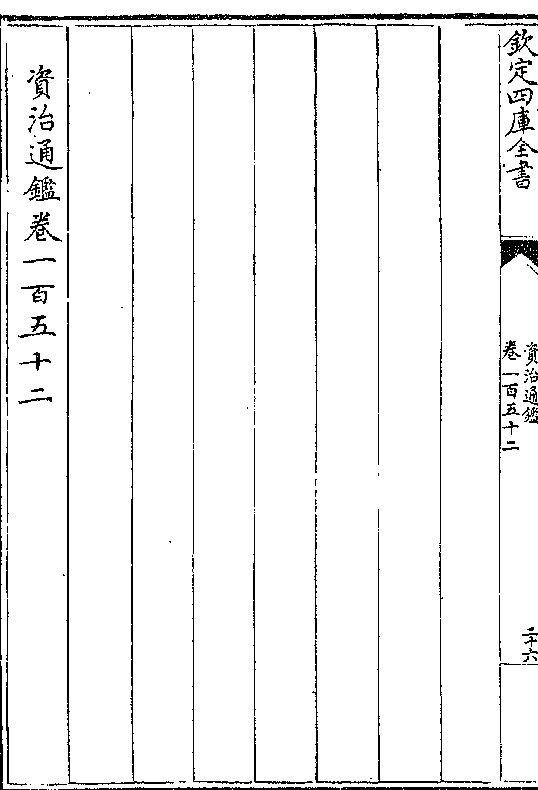 欽定四庫全書
資治通鑑
卷一百五十二
二十六
資治通鑑卷一百五十二